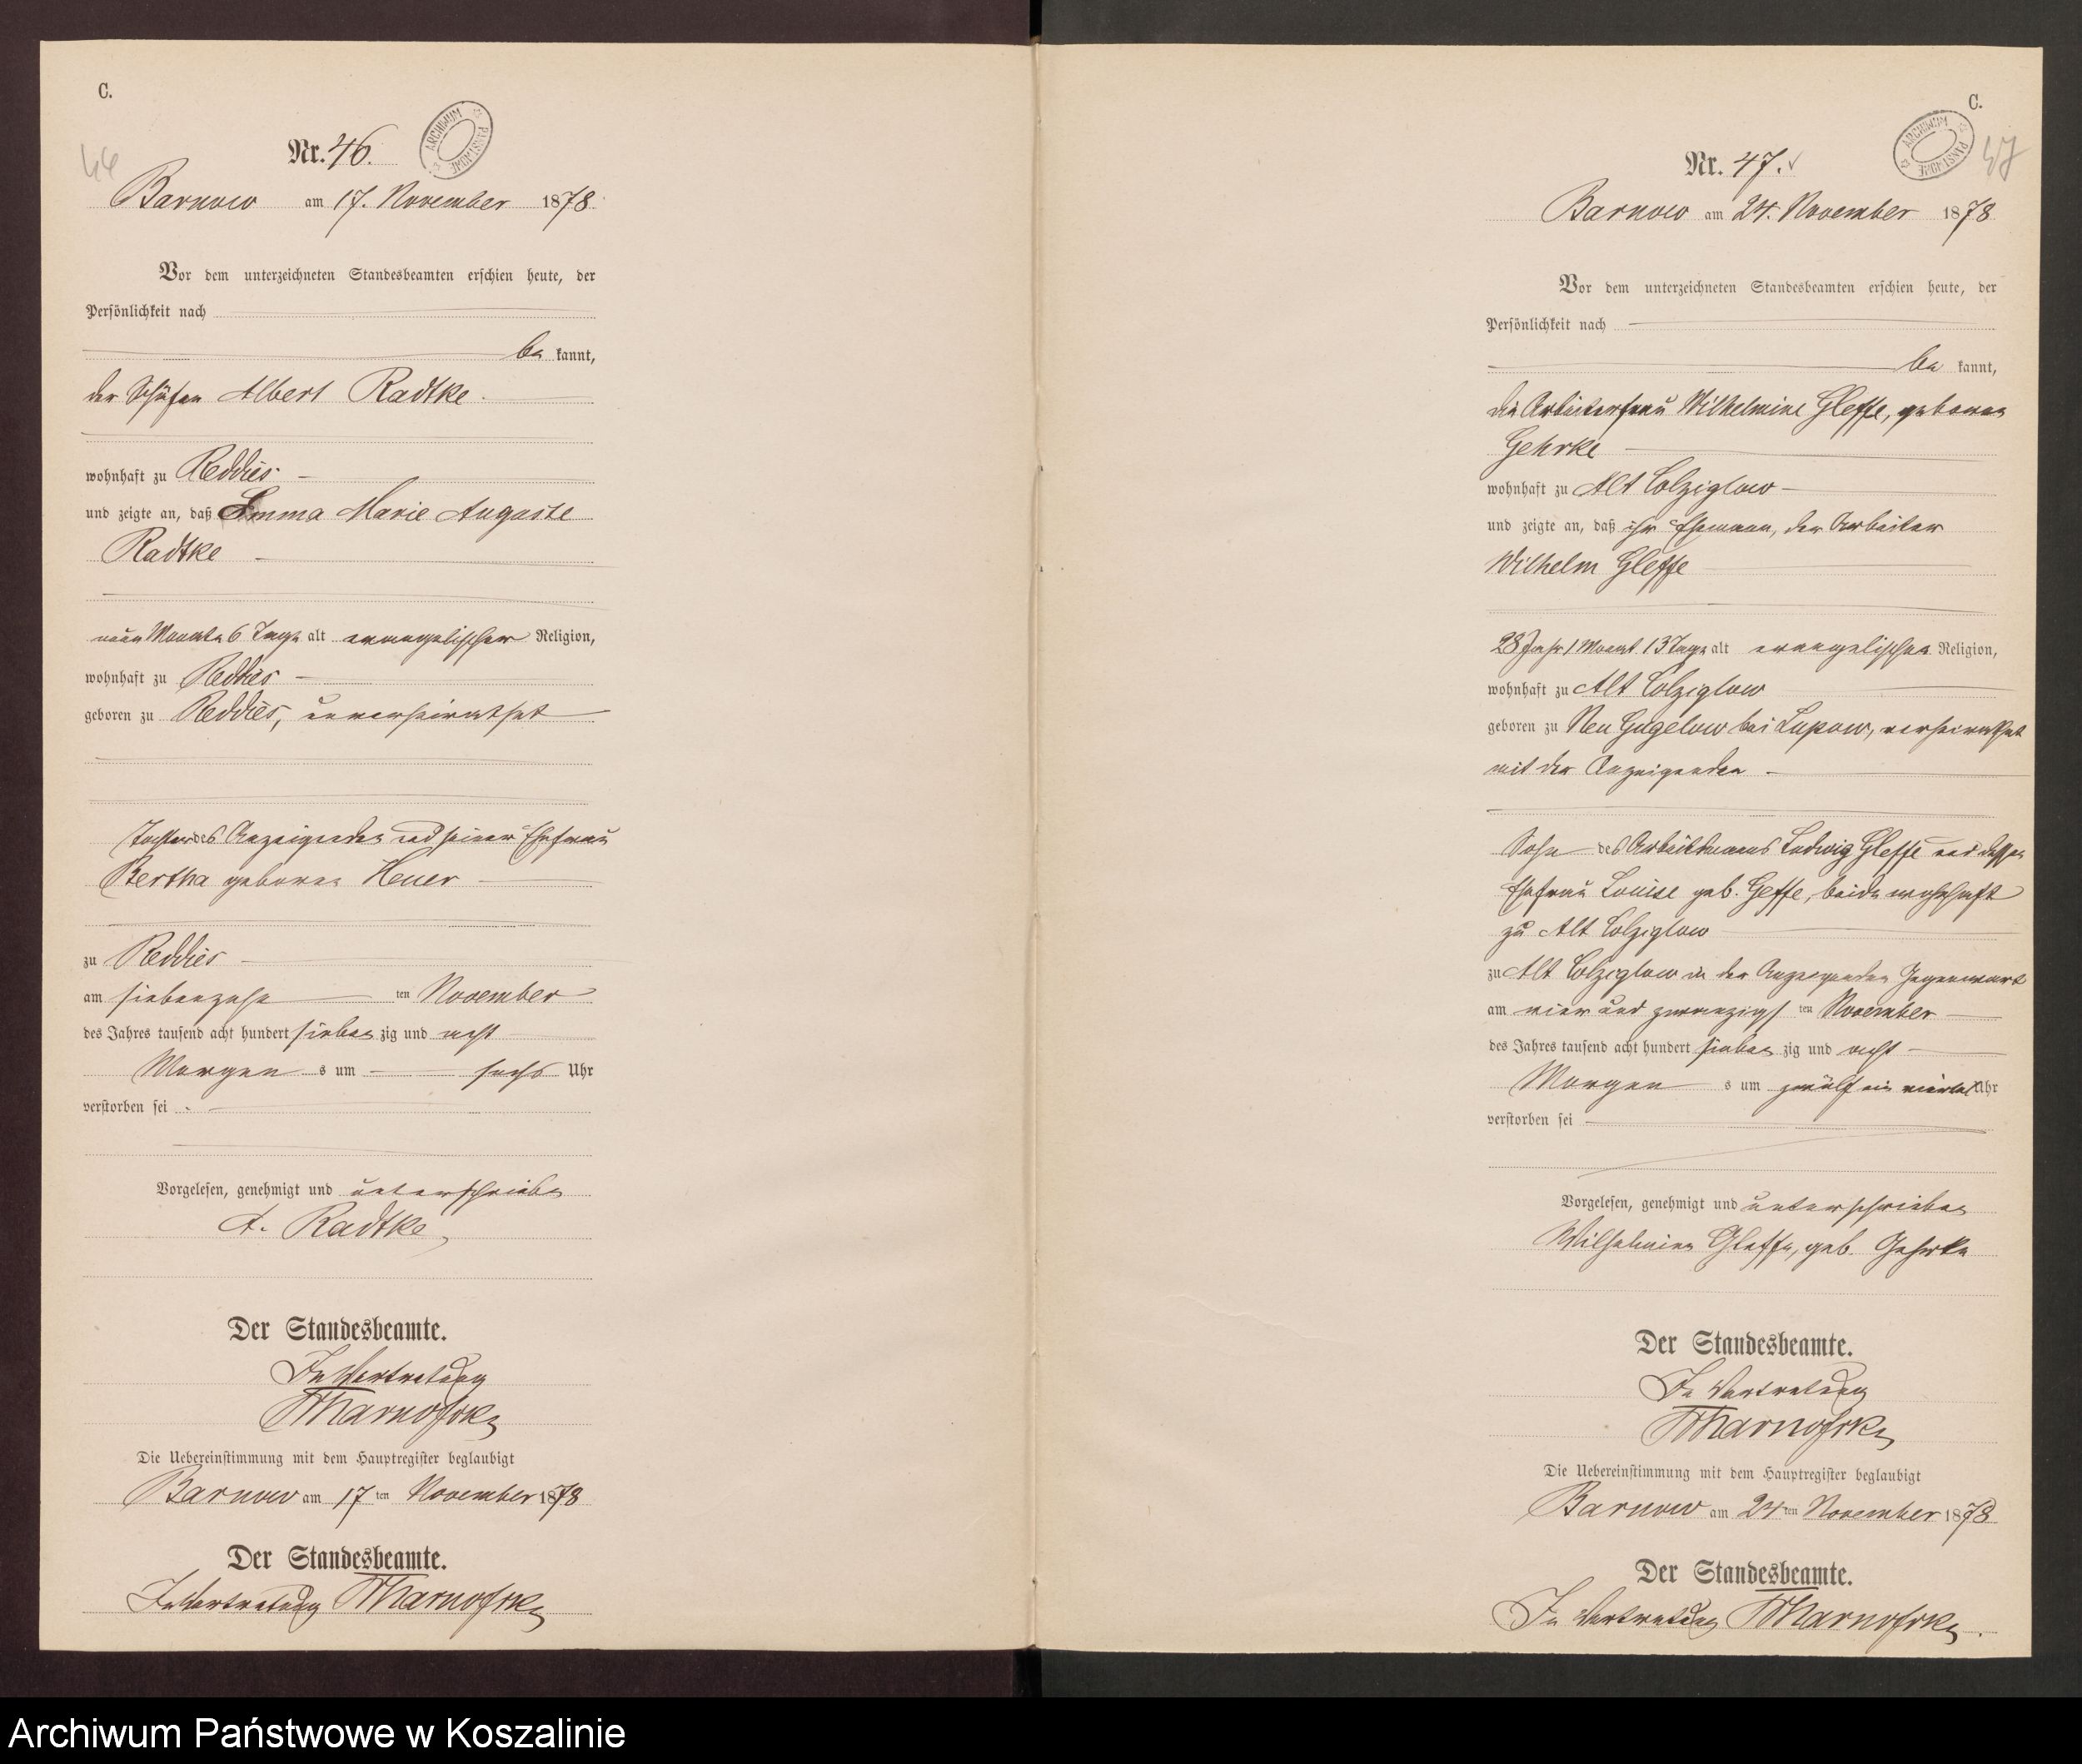 C.
46
Nr. 46.
ARCHIWUM PAŃSTWOWE
Barnow am 17. November 1878
Vor dem unterzeichneten Standesbeamten erschien heute, der
Persönlichkeit nach
be kannt,
der Schäfer Albert Radtke
wohnhaft zu Reddies
und zeigte an, daß Emma Marie Auguste
Radtke
neun Monate 6 Tage alt evangelischer Religion,
wohnhaft zu Reddies
geboren zu Reddies, unverheirathet
Tochter des Anzeigenden und seiner Ehefrau
Bertha geboren Heuer
zu Reddies
am siebenzehn ten November
des Jahres tausend acht hundert sieben zig und acht
Morgen s um sechs Uhr
verstorben sei
Vorgelesen, genehmigt und unterschrieben
A. Radtke
Der Standesbeamte.
In Vertretung
Die Uebereinstimmung mit dem Hauptregister beglaubigt
Barnow am 17 ten November 1878
Der Standesbeamte.
In Vertretung
C.
47
Nr. 47.
ARCHIWUM PAŃSTWOWE
Barnow am 24. November 1878
Vor dem unterzeichneten Standesbeamten erschien heute, der
Persönlichkeit nach
be kannt,
die Arbeiterfrau Wilhelmine Gleffe, geboren
Gehrke
wohnhaft zu Alt Colziglow
und zeigte an, daß ihr Ehemann, der Arbeiter
Wilhelm Gleffe
28 Jahr 1 Monat 13 Tage alt evangelischer Religion,
wohnhaft zu Alt Colziglow
geboren zu Neu Gugelow bei Lupow, verheirathet
mit der Anzeigenden
Sohn des Arbeitsmanns Ludwig Gleffe und dessen
Ehefrau Louise geb. Geffe, beide wohnhaft
zu Alt Colziglow
zu Alt Colziglow in der Anzeigenden Gegenwart
am vier und zwanzigs ten November
des Jahres tausend acht hundert sieben zig und acht
Morgen s um zwölf ein viertel Uhr
verstorben sei
Vorgelesen, genehmigt und unterschrieben
Wilhelmine Gleffe, geb. Gehrke
Der Standesbeamte.
In Vertretung
Die Uebereinstimmung mit dem Hauptregister beglaubigt
Barnow am 24 ten November 1878
Der Standesbeamte.
In Vertretung
Archiwum Państwowe w Koszalinie